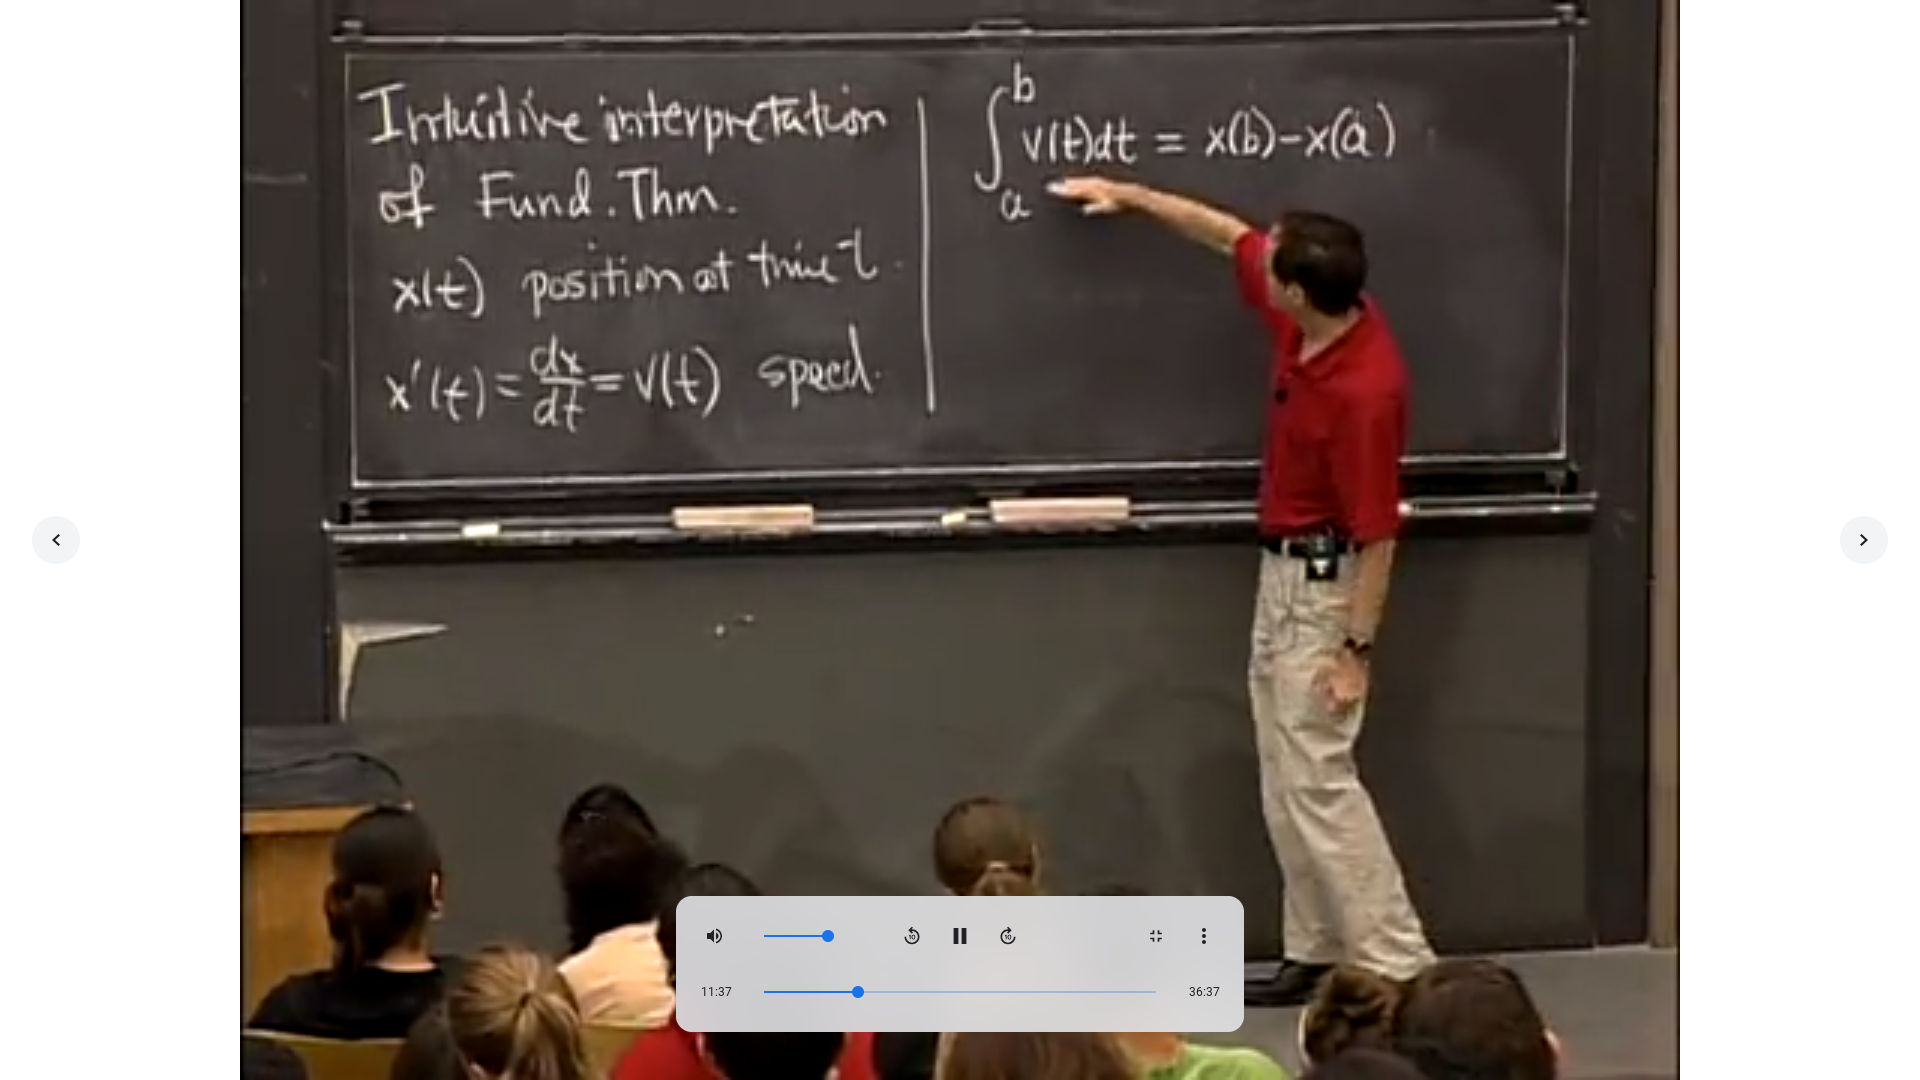 Intuitive interpretation
of Fund. Thm.
x(t) position at time t.
x'(t) = dx/dt = v(t) speed.
∫_a^b v(t)dt = x(b)-x(a)
10
10
11:37
36:37